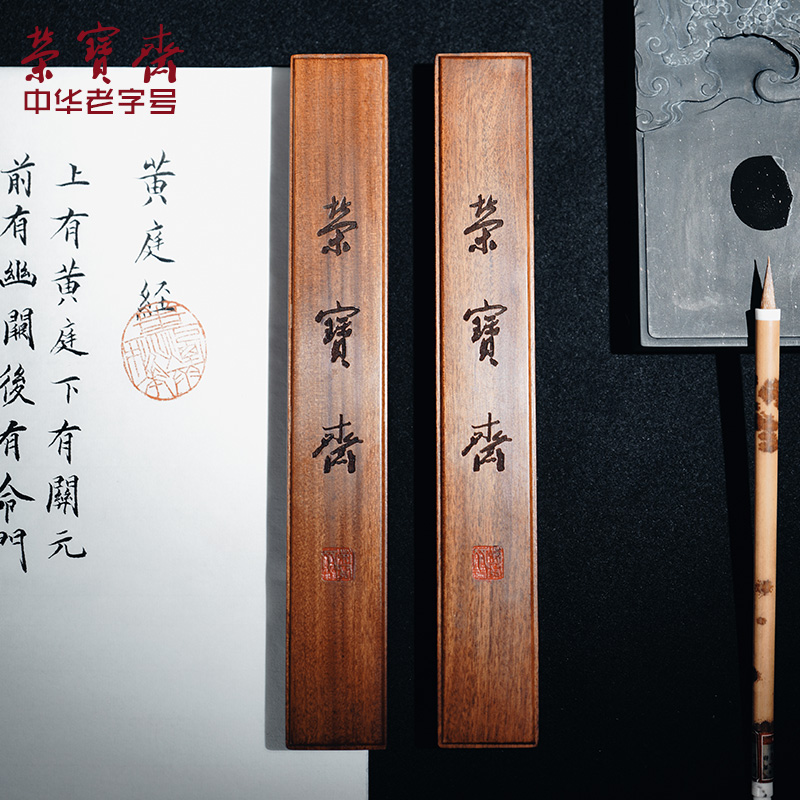 榮寶齋
中华老字号
黃庭經
上有黃庭下有關元
前有幽闕後有命門
榮寶齋
榮寶齋